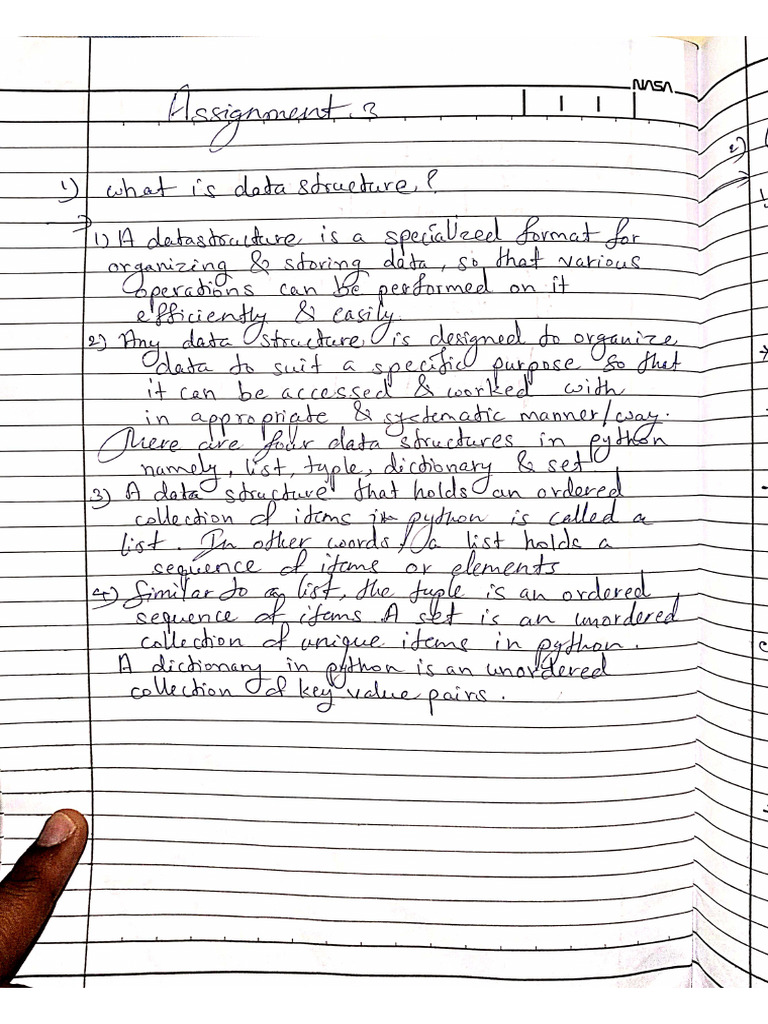 NASA
Assignment. 3
1) what is data structure?
→
1) A datastructure is a specialized format for
organizing & storing data, so that various
operations can be performed on it
efficiently & easily.
2) Any data structure is designed to organize
data to suit a specific purpose so that
it can be accessed & worked with
in appropriate & systematic manner/way.
There are four data structures in python
namely, list, tuple, dictionary & set
3) A data structure that holds an ordered
collection of items in python is called a
list. In other words, a list holds a
sequence of items or elements
4) Similar to a list, the tuple is an ordered
sequence of items. A set is an unordered
collection of unique items in python.
A dictionary in python is an unordered
collection of key value pairs.
2)